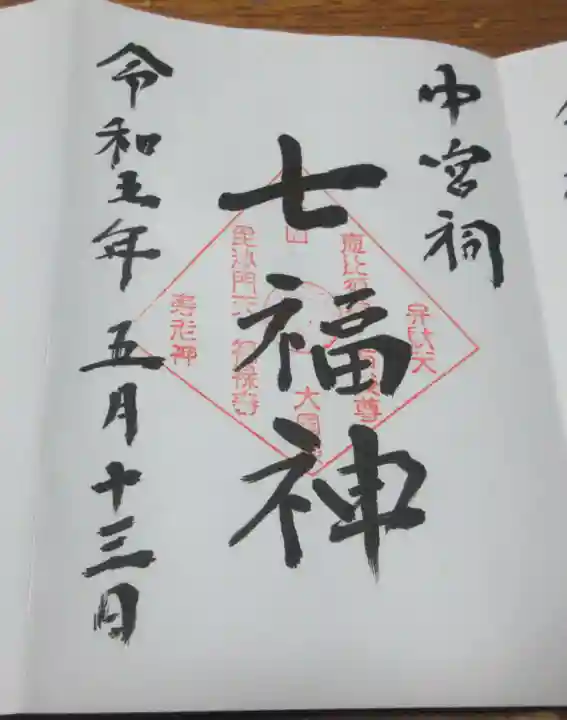 中宮祠
七福神
令和五年 五月十三日
弁財天
毘沙門天
寿老神